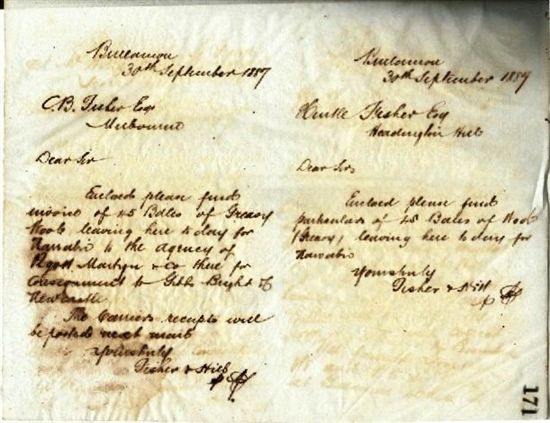 Bullamon
30th September 1887
C. B. Fisher Esq
Melbourne
Dear Sir
Enclosed please find
invoice of 45 Bales of Greasy
Wool leaving here to day for
Narrabri to the agency of
Martyn & Co there for
Consignment to Gibbs Bright &
Newcastle
The Carriers receipts will
be posted next mail
Yours truly
Fisher & Hill
Bullamon
30th September 1887
Hurtle Fisher Esq
Headington Hill
Dear Sir
Enclosed please find
particulars of 45 Bales of Wool
(Greasy) leaving here to day for
Narrabri
Yours truly
Fisher & Hill
171